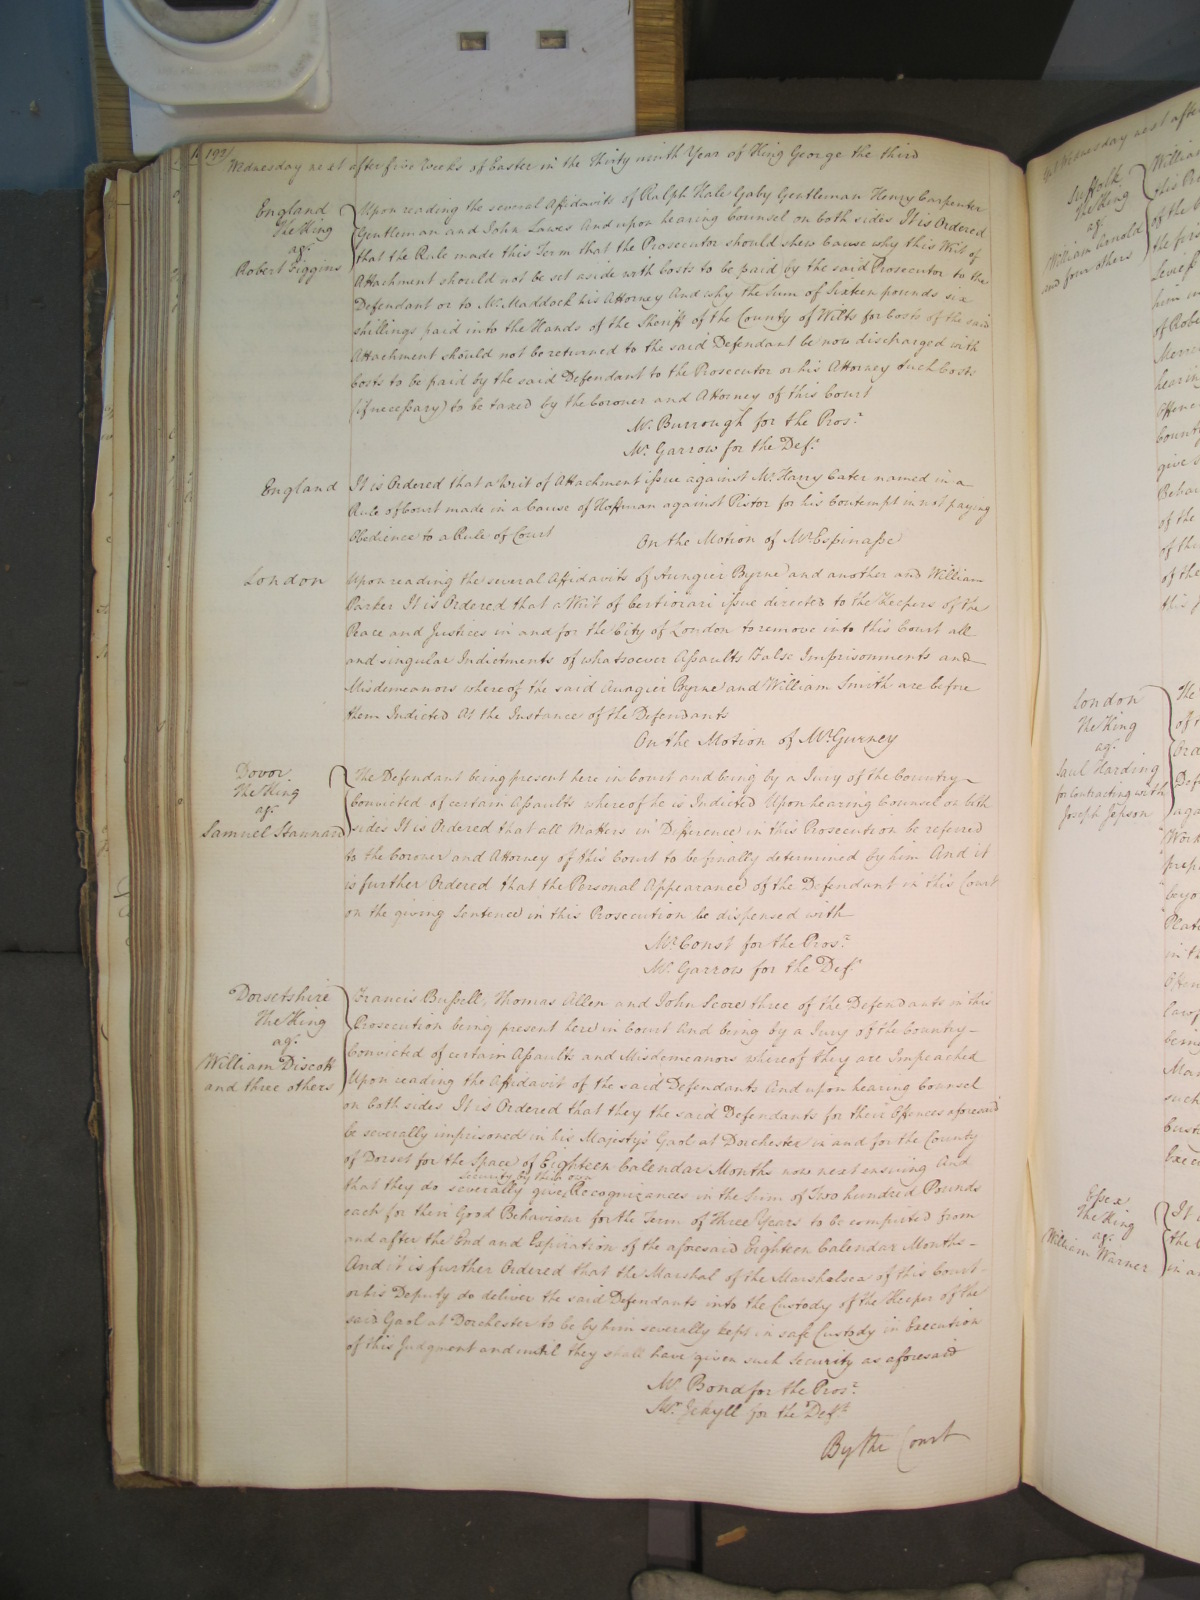 199
Wednesday next after five Weeks of Easter in the Thirty ninth Year of King George the third
England
The King
agt.
Robert Figgins
Upon reading the several Affidavits of Ralph Hale Gaby Gentleman Henry Carpenter
Gentleman and John Lawes And upon hearing Counsel on both sides It is Ordered
that the Rule made this Term that the Prosecutor should shew Cause why this Writ of
Attachment should not be set aside with Costs to be paid by the said Prosecutor to the
Defendant or to Mr. Maddock his Attorney And why the Sum of Sixteen pounds six
shillings paid into the Hands of the Sheriff of the County of Wilts for Costs of the said
Attachment should not be returned to the said Defendant be now discharged with
Costs to be paid by the said Defendant to the Prosecutor or his Attorney such Costs
(if necessary) to be taxed by the Coroner and Attorney of this Court
Mr. Burrough for the Prosr.
Mr. Garrow for the Deft.
England
It is Ordered that a Writ of Attachment issue against Mr. Harry Cater named in a
Rule of Court made in a Cause of Hoffman against Pistor for his Contempt in not paying
Obedience to a Rule of Court
On the Motion of Mr. Espinasse
London
Upon reading the several Affidavits of Aungier Byrne and another and William
Parker It is Ordered that a Writ of Certiorari issue directed to the Keepers of the
Peace and Justices in and for the City of London to remove into this Court all
and singular Indictments of whatsoever Assaults False Imprisonments and
Misdemeanors whereof the said Aungier Byrne and William Smith are before
them Indicted At the Instance of the Defendants
On the Motion of Mr. Gurney
Dovor
The King
agt.
Samuel Stannard
The Defendant being present here in Court and being by a Jury of the Country
Convicted of certain Assaults whereof he is Indicted Upon hearing Counsel on both
sides It is Ordered that all Matters in Difference in this Prosecution be referred
to the Coroner and Attorney of this Court to be finally determined by him And it
is further Ordered that the Personal Appearance of the Defendant in this Court
on the giving Sentence in this Prosecution be dispensed with
Mr. Const for the Prosr.
Mr. Garrow for the Deft.
Dorsetshire
The King
agt.
William Discott
and three others
Francis Bussell, Thomas Allen and John Score three of the Defendants in this
Prosecution being present here in Court And being by a Jury of the Country
Convicted of certain Assaults and Misdemeanors whereof they are Impeached
Upon reading the Affidavit of the said Defendants And upon hearing Counsel
on both sides It is Ordered that they the said Defendants for their Offences aforesaid
be severally imprisoned in his Majesty's Gaol at Dorchester in and for the County
of Dorset for the Space of Eighteen Calendar Months now next ensuing And
security by their own
that they do severally give Recognizances in the Sum of Two hundred Pounds
each for their Good Behaviour for the Term of three Years to be computed from
and after the End and Expiration of the aforesaid Eighteen Calendar Months
And it is further Ordered that the Marshal of the Marshalsea of this Court
or his Deputy do deliver the said Defendants into the Custody of the Keeper of the
said Gaol at Dorchester to be by him severally kept in safe Custody in Execution
of this Judgment and until they shall have given such Security as aforesaid
Mr. Bond for the Prosr.
Mr. Jekyll for the Defts.
By the Court
Wednesday next after
Suffolk
The King
agt.
William Arnold
and four others
London
The King
agt.
Saul Harding
for Contracting with
Joseph Jepson
Essex
The King
agt.
William Warner